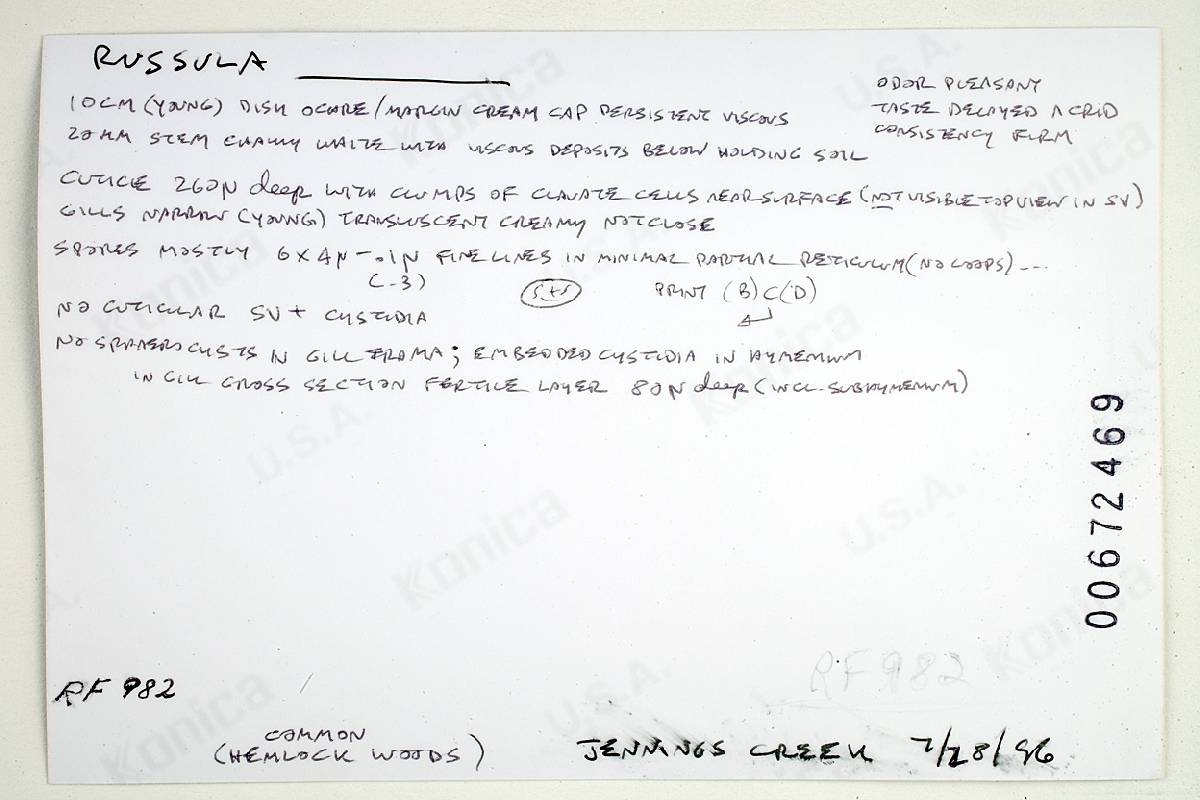 RUSSULA
ODOR PLEASANT
TASTE DELAYED ACRID
CONSISTENCY FIRM
10CM (YOUNG) DISK OCHRE/MARGIN CREAM CAP PERSISTENT VISCOUS
20MM STEM CHALKY WHITE WITH VISCOUS DEPOSITS BELOW HOLDING SOIL
CUTICLE 260µ deep WITH CLUMPS OF CLAVATE CELLS NEAR SURFACE (NOT VISIBLE TOP VIEW IN SV)
GILLS NARROW (YOUNG) TRANSLUSCENT CREAMY NOT CLOSE
SPORES MOSTLY 6X4µ - .1µ FINE LINES IN MINIMAL PARTIAL RETICULUM (NO LOOPS) ---
(.3)
PRINT (B)C(D)
NO CUTICULAR SV+ CYSTIDIA
NO SPHAEROCYSTS IN GILL TRAMA; EMBEDDED CYSTIDIA IN HYMENIUM
IN GILL CROSS SECTION FERTILE LAYER 80µ deep (INCL. SUBHYMENIUM)
00672469
RF 982
RF 982
COMMON
(HEMLOCK WOODS)
JENNINGS CREEK 7/28/96
Konica
U.S.A.